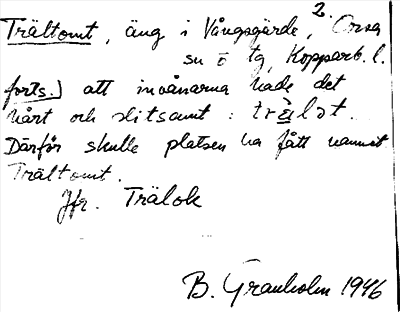 2.
Trältomt, äng i Vångsgärde, Orsa
sn ö tg, Kopparb. l.
forts.) att invånarna hade det
hårt och slitsamt: trälǝt.
Därför skulle platsen ha fått namnet
Trältomt.
Jfr. Trälok
B. Granholm 1946